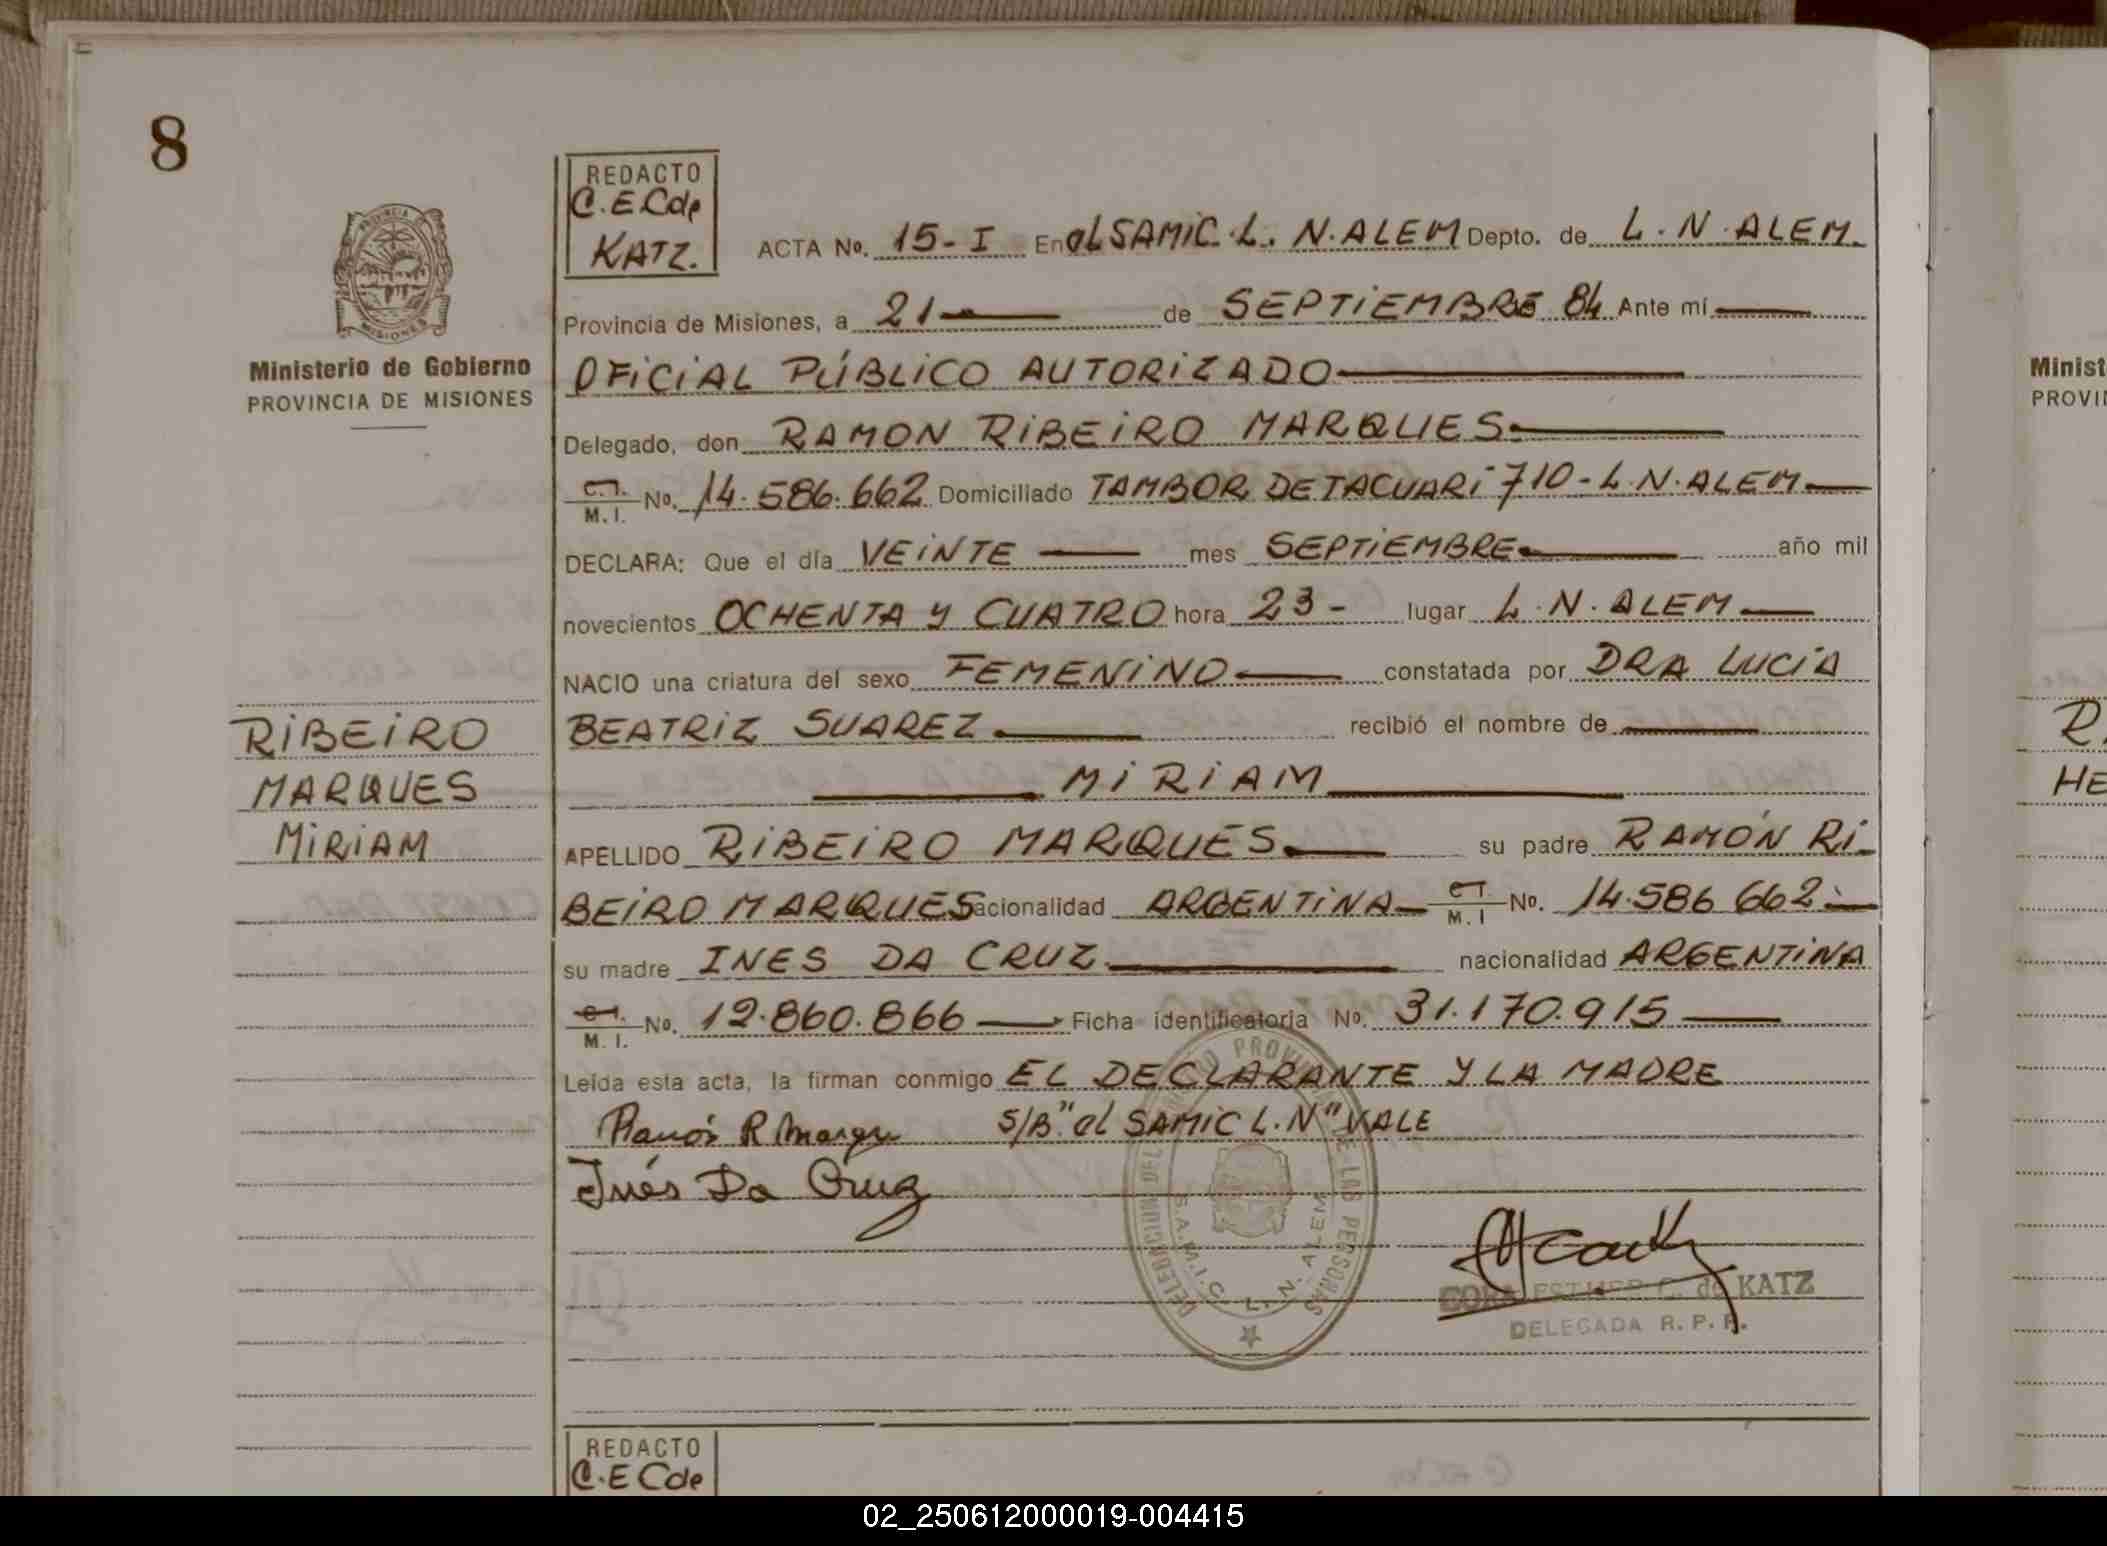 8
REDACTO
C.E.C de
KATZ.
ACTA No. 15-I En el SAMIC. L. N. ALEM Depto. de L. N. ALEM.
PROVINCIA DE
MISIONES
Ministerio de Gobierno
PROVINCIA DE MISIONES
Provincia de Misiones, a 21 de SEPTIEMBRE 84 Ante mí
OFICIAL PÚBLICO AUTORIZADO
Delegado, don RAMON RIBEIRO MARQUES.
C.I.
M. I. No. 14.586.662 Domiciliado TAMBOR DE TACUARI 710-L.N.ALEM
DECLARA: Que el día VEINTE mes SEPTIEMBRE año mil
novecientos OCHENTA Y CUATRO hora 23- lugar L.N. ALEM
NACIO una criatura del sexo FEMENINO constatada por DRA LUCIA
BEATRIZ SUAREZ recibió el nombre de
MIRIAM
RIBEIRO
MARQUES
MIRIAM
APELLIDO RIBEIRO MARQUES su padre RAMÓN RI-
BEIRO MARQUES acionalidad ARGENTINA C.I. M. I No. 14.586 662
su madre INES DA CRUZ nacionalidad ARGENTINA
C.I.
M. I. No. 12.860.866 Ficha identificatoria No. 31.170.915
Leída esta acta, la firman conmigo EL DECLARANTE Y LA MADRE
Ramón R Marque S/B "el SAMIC L.N" VALE
Inés Da Cruz
DELEGACION DEL REGISTRO PROVINCIAL DE LAS PERSONAS
S.A.M.I.C. L. N. ALEM
CORA ESTHER C. de KATZ
DELEGADA R. P. P.
REDACTO
C.E C de
Minist
PROVIN
R
HE
02_250612000019-004415